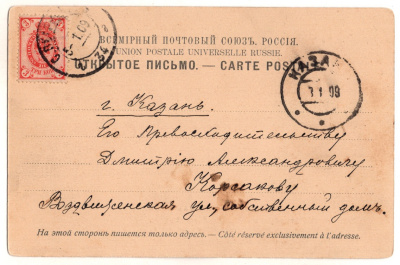 ВСЕМІРНЫЙ ПОЧТОВЫЙ СОЮЗЪ. РОССІЯ.
UNION POSTALE UNIVERSELLE RUSSIE.
ОТКРЫТОЕ ПИСЬМО. — CARTE POST
КАЗАН
3 1 09
1 09
г. Казань.
Его Превосходительству
Дмитрію Александровичу
Корсакову
Воздвиженская ул, собственный домъ.
На этой сторонѣ пишется только адресъ. — Côté réservé exclusivement à l'adresse.